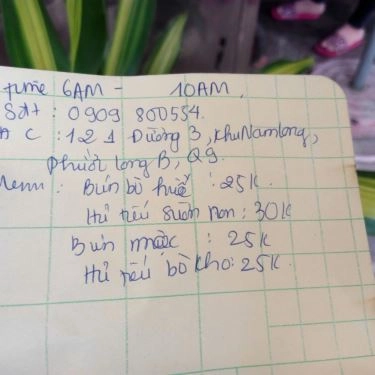 time 6AM - 10AM.
Sđt: 0909 800554.
ĐC: 121 Đường 3, Khu Nam Long,
Phước Long B, Q9.
Menu: Bún bò huế: 25K
Hủ tiếu sườn non: 30K
Bún mọc: 25K
Hủ tiếu bò kho: 25K.